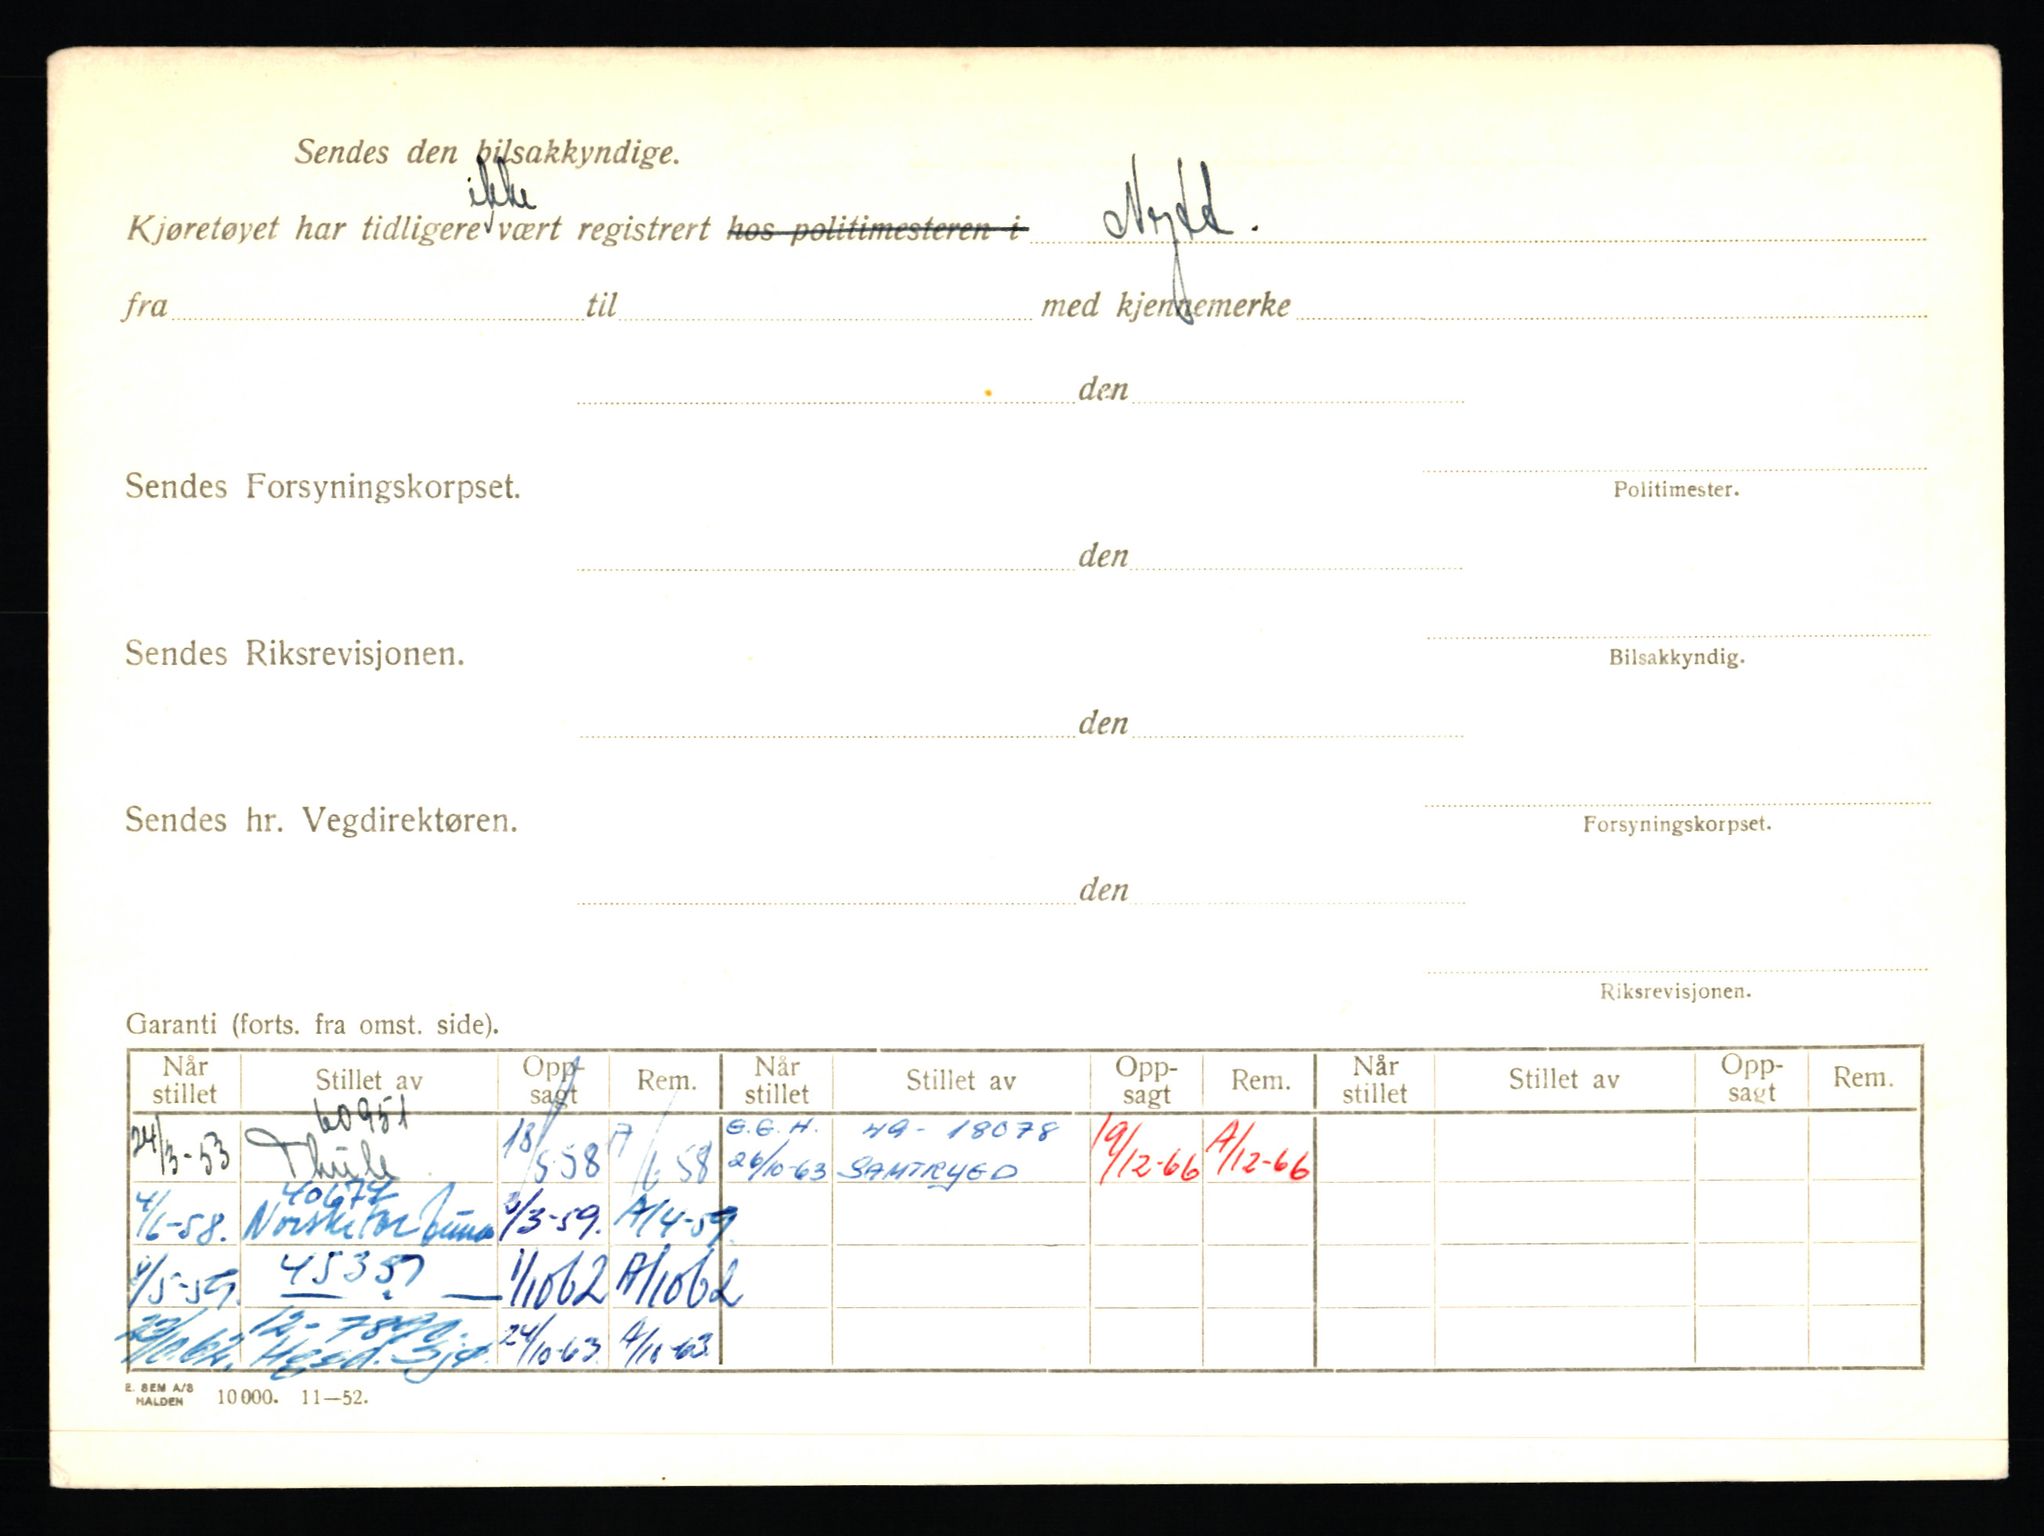 Sendes den bilsakkyndige.
ikke
Kjøretøyet har tidligere vært registrert hos politimesteren i Nytt.
fra til med kjennemerke
den
Sendes Forsyningskorpset.
Politimester.
den
Sendes Riksrevisjonen.
Bilsakkyndig.
den
Sendes hr. Vegdirektøren.
Forsyningskorpset.
den
Riksrevisjonen.
Garanti (forts. fra omst. side).
Når stillet Stillet av Opp-sagt Rem. Når stillet Stillet av Opp-sagt Rem. Når stillet Stillet av Opp-sagt Rem.
60951 G.G.H. 49-18078
24/3-53 Thule 18/5 58 A/6 58 26/10-63 SAMTRYGD 19/12-66 A/12-66
40674
4/6-58. Norske 3/3-59. A/4-59.
/5-59. 45357 1/1062 A/1062
12-
24/10-63. A/10-63.
E. SEM A/S
HALDEN 10 000. 11—52.